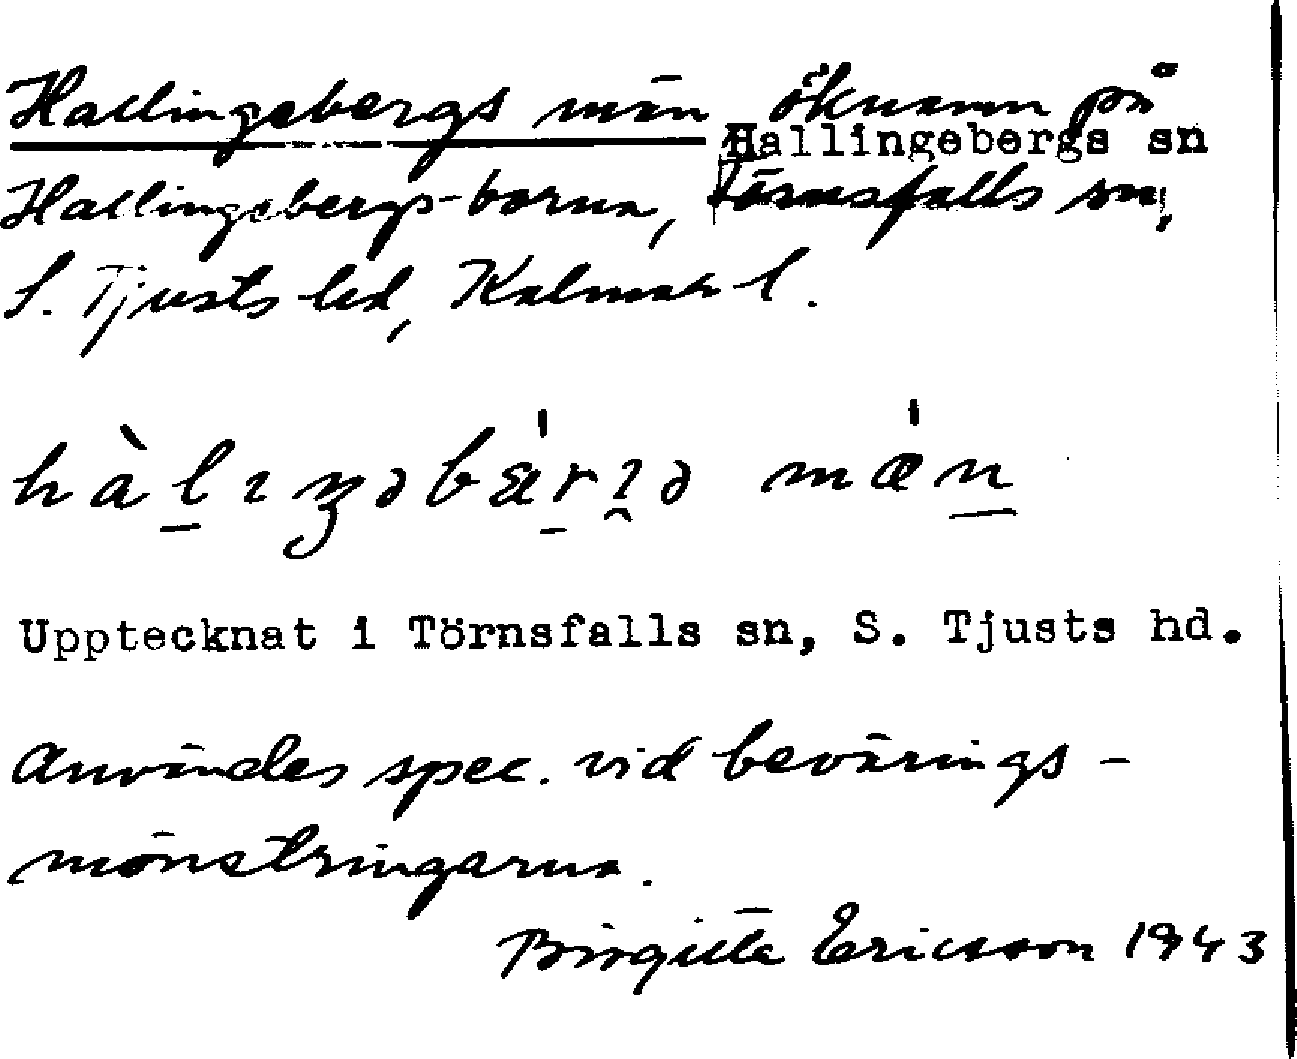 Hallingebergs män öknamn på
Hallingebergs sn
Hallingebergs-borna, Törnsfalls sn,
S. Tjusts hd, Kalmar l.
Upptecknat i Törnsfalls sn, S. Tjusts hd.
Användes spec. vid bevärings-
mönstringarna.
Birgitta Ericsson 1943